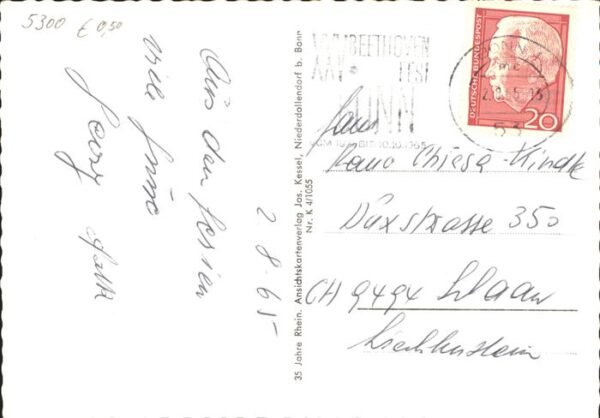 5300 € 0,50
Aus den Ferien
viele Grüsse
2.8.65
35 Jahre Rhein. Ansichtskartenverlag Jos. Kessel, Niederdollendorf b. Bonn
Nr. K 4/1055
BEETHOVEN
BONN
DEUTSCHE BUNDESPOST
20
53
Remo Chiesa-Kindle
Duxstrasse 350
CH 9494 Schaan
Liechtenstein